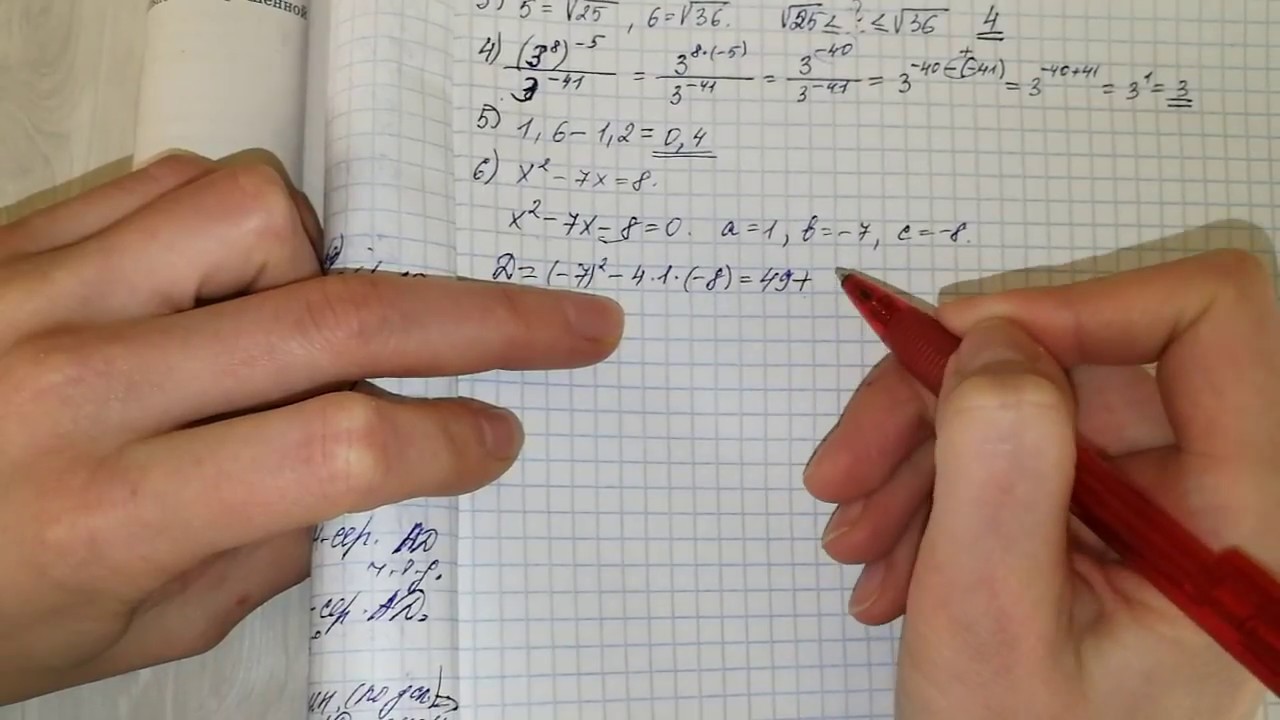 шенной
3) 5 = √25 , 6 = √36. √25 ≤ ? ≤ √36 4
4) (3⁸)⁻⁵ / 3⁻⁴¹ = 3⁸·⁽⁻⁵⁾ / 3⁻⁴¹ = 3⁻⁴⁰ / 3⁻⁴¹ = 3⁻⁴⁰⁻⁽⁻⁴¹⁾ = 3⁻⁴⁰⁺⁴¹ = 3¹ = 3
5) 1,6 - 1,2 = 0,4
6) x² - 7x = 8.
x² - 7x - 8 = 0. a = 1, b = -7, c = -8.
D = (-7)² - 4·1·(-8) = 49+
-сер. AD
-сер. AD,